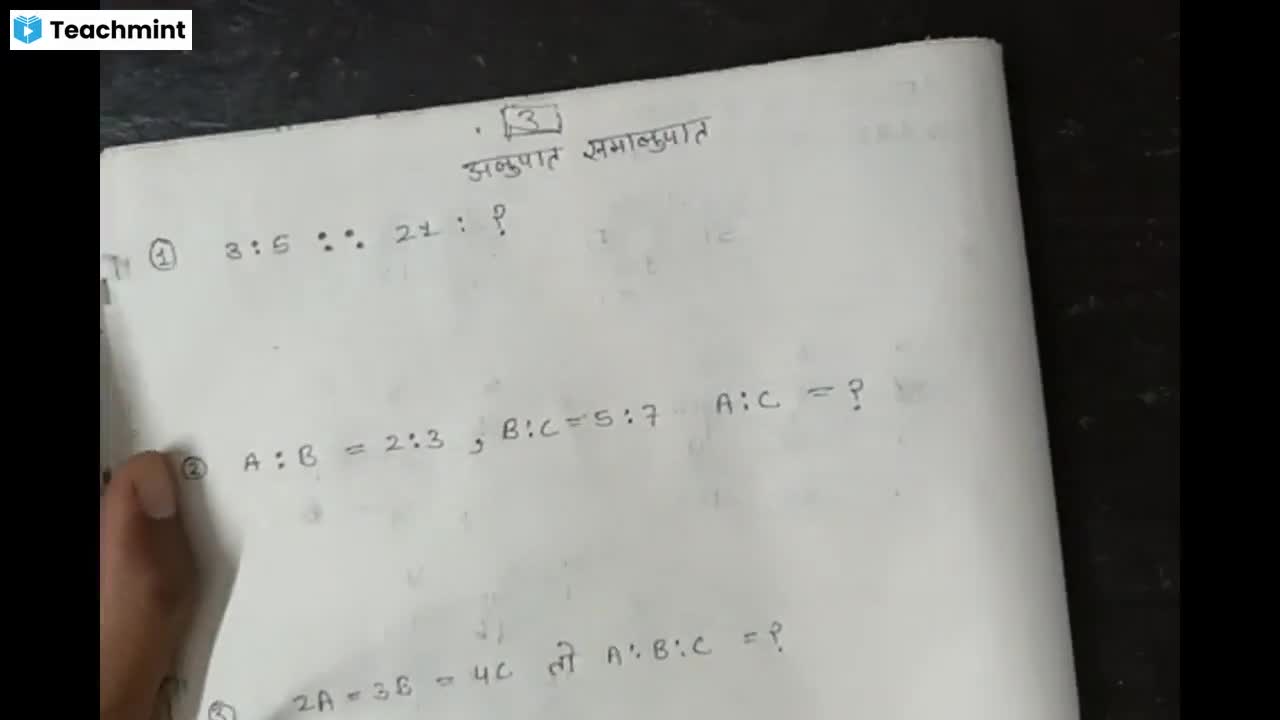 Teachmint
3
अनुपात समानुपात
① 3:5 :: 21 : ?
② A:B = 2:3 , B:C = 5:7 A:C = ?
③ 2A = 3B = 4C तो A:B:C = ?